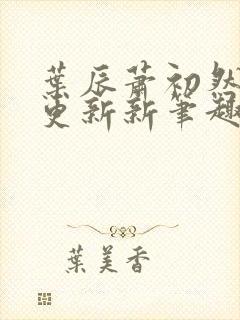 葉辰蕭初然
更新新筆趣
葉美香